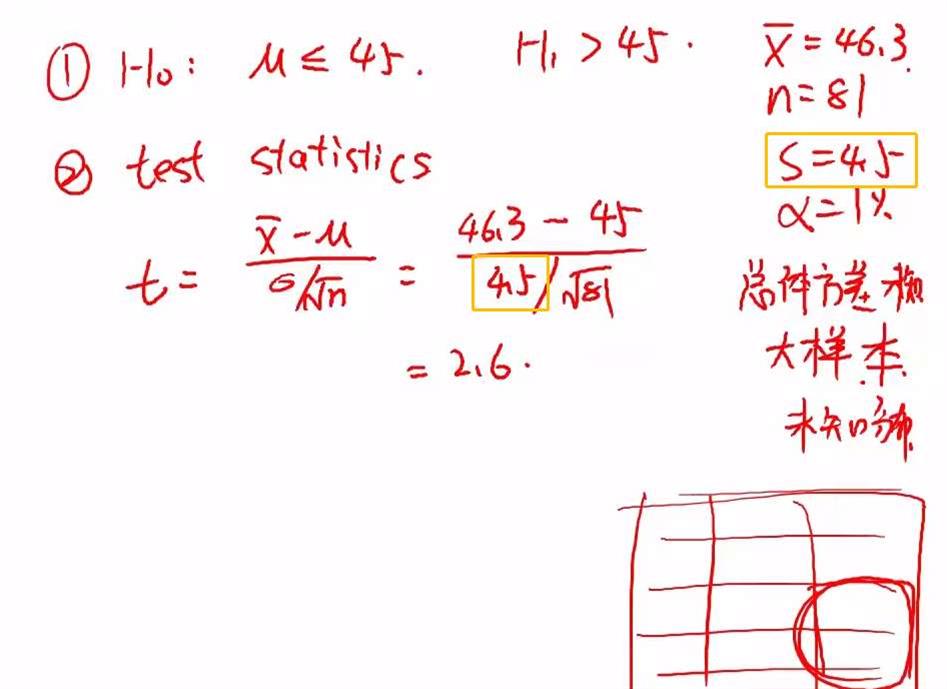 ① H₀: μ ≤ 45. H₁ > 45.
x̄ = 46.3
n = 81
S = 4.5
α = 1%
② test statistics
t = (x̄ - μ)/(σ/√n) = (46.3 - 45)/(4.5/√81)
= 2.6.
总体方差
大样本
未知